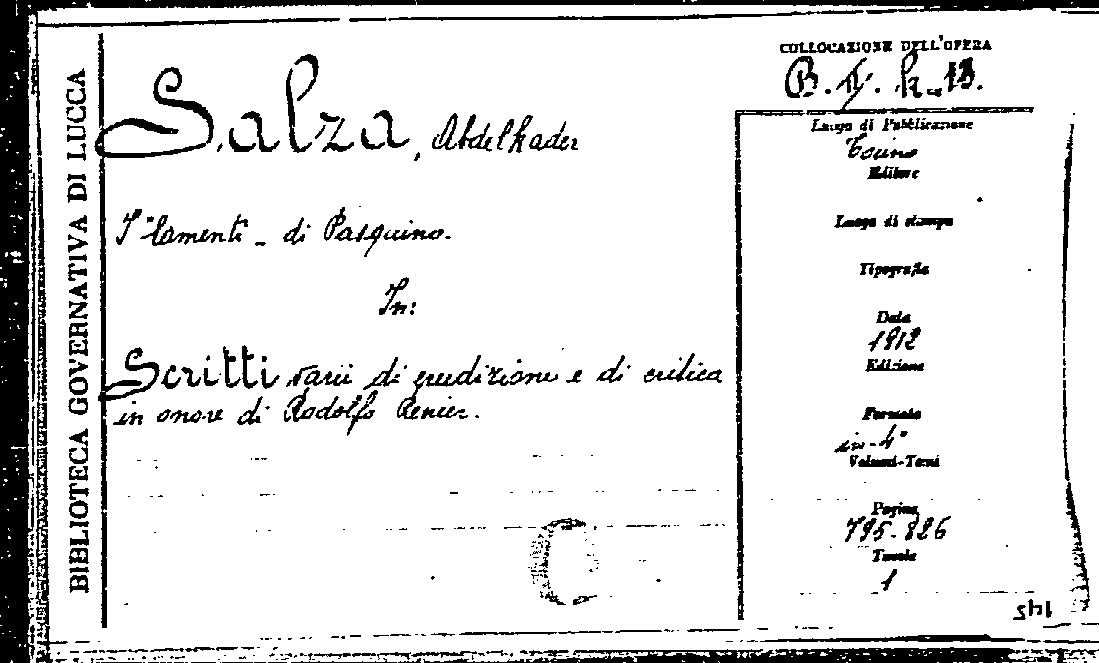 BIBLIOTECA GOVERNATIVA DI LUCCA
Salza, Abdelkader
I "lamenti" di Pasquino.
In:
Scritti varii di erudizione e di critica
in onore di Rodolfo Renier.
C
COLLOCAZIONE DELL'OPERA
B. h. 13.
Luogo di Pubblicazione
Torino
Editore
Luogo di stampa
Tipografia
Data
1912
Edizione
Formato
in-4°
Volumi-Tomi
Pagine
795-826
Tavole
1
1415